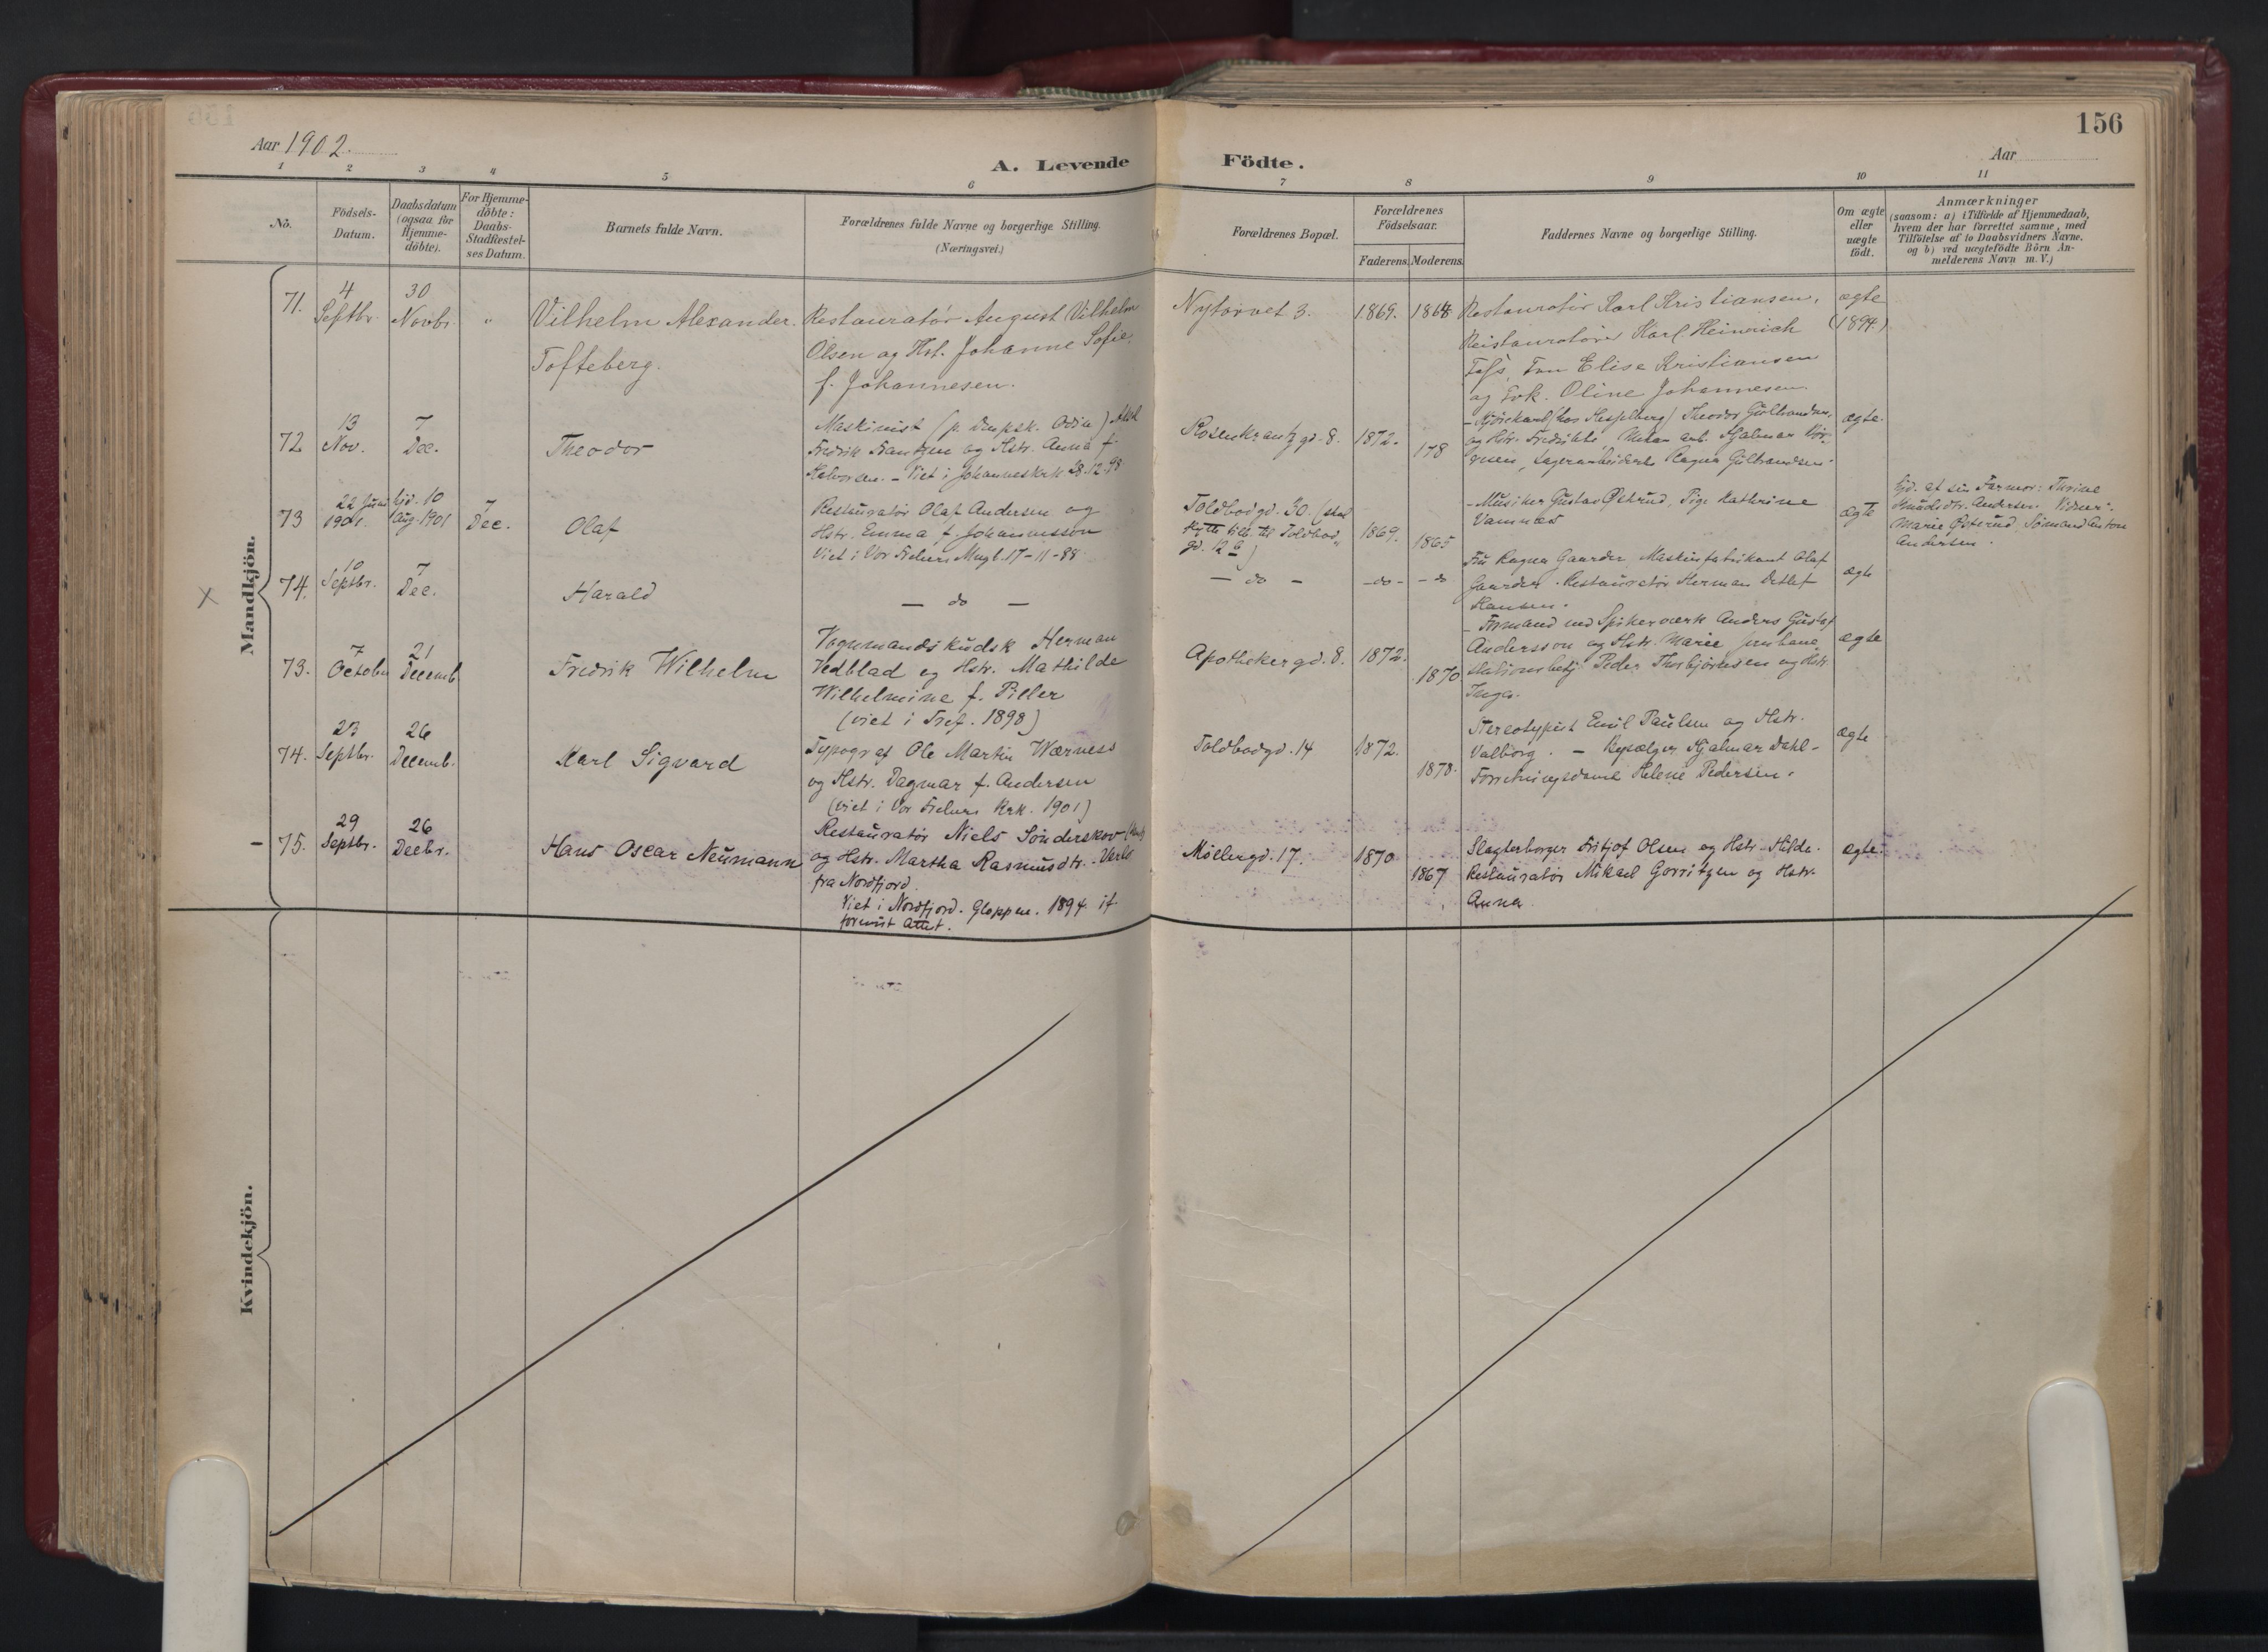 156
Aar 1902.
A. Levende Födte.
Aar
1 2 3 4 5 6 7 8 9 10 11
No.
Födsels-
Datum.
Daabsdatum
(ogsaa for
Hjemme-
döbte).
For Hjemme-
döbte:
Daabs-
Stadfæstel-
ses Datum.
Barnets fulde Navn.
Forældrenes fulde Navne og borgerlige Stilling.
(Næringsvei.)
Forældrenes Bopæl.
Forældrenes
Födselsaar.
Faderens. Moderens.
Faddernes Navne og borgerlige Stilling.
Om ægte
eller
uægte
födt.
Anmærkninger
(saasom: a) i Tilfælde af Hjemmedaab,
hvem der har forrettet samme, med
Tilföielse af to Daabsvidners Navne,
og b) ved uægtefödte Börn An-
melderens Navn m. V.)
Mandkjön.
71.
4
Septbr.
30
Novbr.
"
Vilhelm Alexander
Tofteberg.
Restauratør August Vilhelm
Olsen og Hst. Johanne Sofie
f. Johannesen.
Nytorvet 3.
1869. 1864.
Restauratør Karl Kristiansen,
Restauratør Karl Heinrich
Fru Elise Kristiansen
og Frk. Oline Johannesen.
ægte
(1894.)
72
13
Nov.
7
Dec.
Theodor
Maskinist (p. Dmpsk. Odin) Axel
Fredrik Frantzen og Hstr. Anna f.
Halvorsen. - Viet i Johanneskrk 28.12.98
Rosenkrantzgd. 8.
1872.
178
- Kjørekarl (hos Hesselberg) Theodor Gulbrandsen,
og Hstr. Fredrikke, arb. Hjalmar
Lagerarbeiderske Ragna Gulbrandsen.
ægte.
73
22 Juni
1901.
hjd. 10
Aug. 1901
7
Dec.
Olaf
Restauratør Olaf Andersen og
Hstr. Emma f. Johannesson
Viet i Vor Frelsers Mngt. 17-11-88
Toldbodgd. 30. (skal
flytte til Toldbod-
gd. 12 b)
1869.
1865
- Musiker Gustav Østerud, Pige Kathrine
Vamnæs
ægte
hjd. af sin Farmor: Thrine
Knudsdtr. Andersen. Vidner:
Marie Østerud, Sømand Anton
Andersen.
X
74.
10
Septbr.
7
Dec.
Harald
- do -
- do -
- do - - do
Fru Ragna Gaarder, Maskinfabrikant Olaf
Gaarder. Restauratør Herman Detlef
Hansen.
ægte
73.
7
October
21
Decemb
Fredrik Wilhelm
Vognmandskudsk Herman
Vedblad og Hstr. Mathilde
Wilhelmine f. Piller
(viet i Tref. 1898)
Apothekergd. 8.
1872.
1870.
- Formand ved Spikerværk Anders Gustaf
Andersson og Hstr. Marie Jensine
Stationsbetj. Peder Thorbjørnsen og Hstr.
Inga.
ægte
74.
23
Septbr.
26
Decemb.
Karl Sigvard
Typograf Ole Martin Wærness
og Hstr. Dagmar f. Andersen
(viet i Vor Frelsers Krk. 1901)
Toldbodgd. 14
1872.
1878.
Stereotypist Emil Paulsen og Hstr.
Valborg. - Bysælger Hjalmar Dahl -
Forretningsdame Helene Pedersen.
ægte
- 75.
29
Septbr.
26
Decbr.
Hans Oscar Neumann
Restauratør Niels Sønderskov
og Hstr. Martha Rasmusdtr.
fra Nordfjord.
Viet i Nordfjord. Gloppen. 1894 if.
forevist Attest.
Møllergd. 17.
1870
1867
Slagterborger Fritjof Olsen og Hstr. Hilda.
Restauratør Mikael Gorritzen og Hstr.
Anna.
ægte.
Kvindekjön.